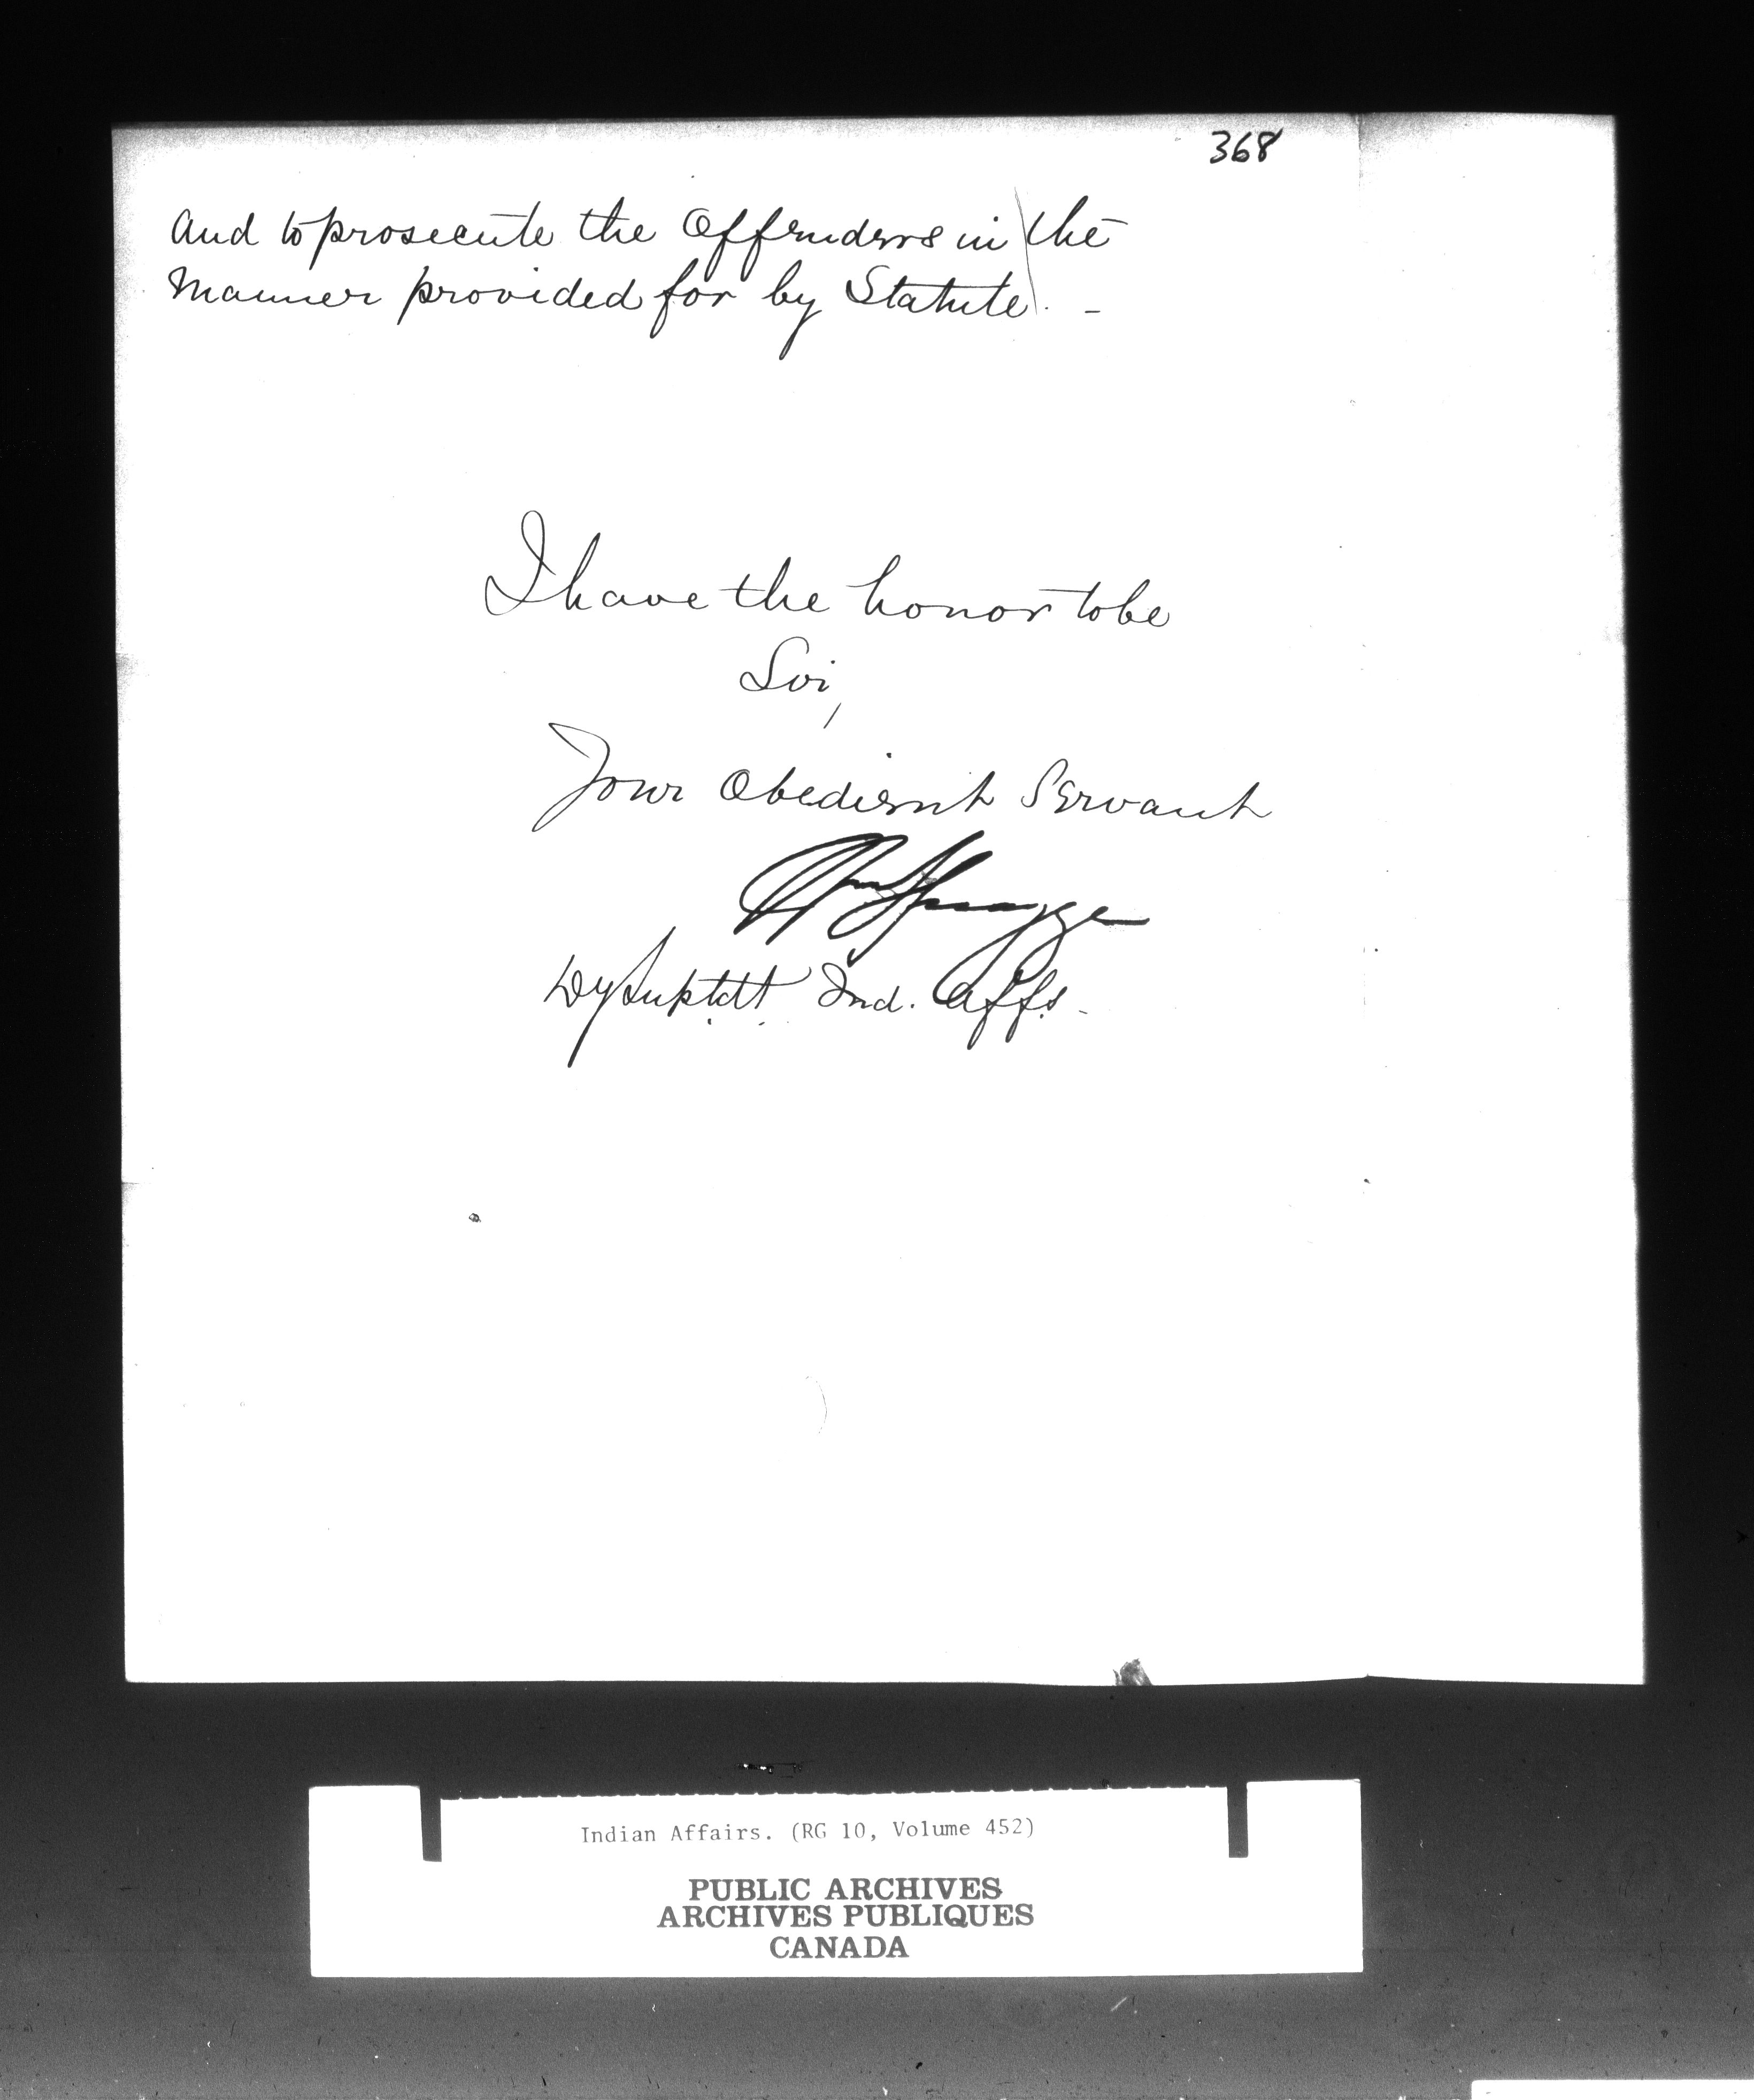 368
and to prosecute the Offenders in the
Manner provided for by Statute. -
I have the honor to be
Sir,
Your Obedient Servant
Spragge
Dy Suptdt Ind. Affs.
Indian Affairs. (RG 10, Volume 452)
PUBLIC ARCHIVES
ARCHIVES PUBLIQUES
CANADA